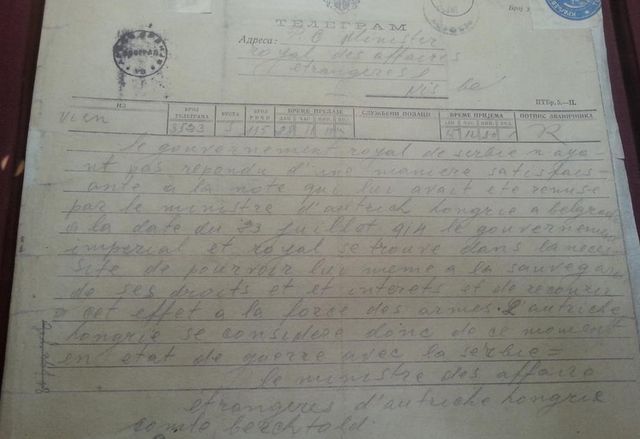 Број 3
ТЕЛЕГРАМ
Адреса: Minister
royal des affaires
etrangeres
Nis
ПТБр. 5.—II.
ИЗ
БРОЈ ТЕЛЕГРАМА
ВРСТА
БРОЈ РЕЧИ
ВРЕМЕ ПРЕДАЈЕ
СЛУЖБЕНИ ПОДАЦИ
ВРЕМЕ ПРИЈЕМА
ПОТПИС ЗВАНИЧНИКА
ДАН ЧАС МИН.
ДАН ЧАС МИН.
Vien 3523 115 28
le gouvernement royal de serbie n ayo
nt pas repondu d'une maniere satisfais-
ante a la note qui lui avait ete remise
par le ministre d'autrich hongrie a belgrad
a la date du 23 juillot 914 le gouverneme
imperial et royal se trouve dans lanece
site de pourvoir lui meme a la sauvegar
de ses droits et et interets et de recourir
a cet effet a la force des armes. L'autriche
hongrie se considere donc de ce moment
en etat de guerre avec la serbie=
le ministre des affairo
etrangeres d'autriche hongrie
comte berchtold